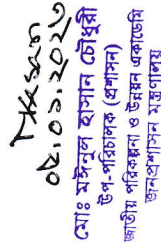 ০৫.০১.২০২৩
মোঃ মঈনুল হাসান চৌধুরী
উপ-পরিচালক (প্রশাসন)
জাতীয় পরিকল্পনা ও উন্নয়ন একাডেমি
জনপ্রশাসন মন্ত্রণালয়